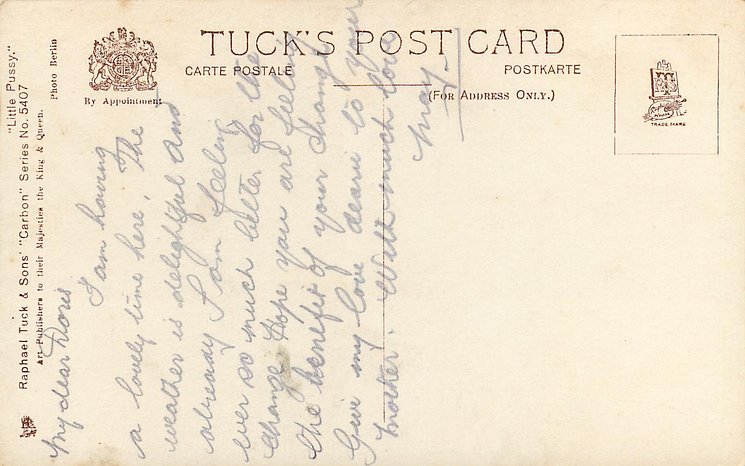 TUCK'S POST CARD
CARTE POSTALE
POSTKARTE
(FOR ADDRESS ONLY.)
By Appointment
TRADE MARK
"Little Pussy."
Photo Berlin
Raphael Tuck & Sons' "Carbon" Series No. 5407
Art Publishers to their Majesties the King & Queen.
My dear Doris
I am having
a lovely time here. The
weather is delightful and
already I am feeling
ever so much better for the
change. Hope you are feeling
the benefit of your change
Give my love dearie to your
Mother. With much love
May-